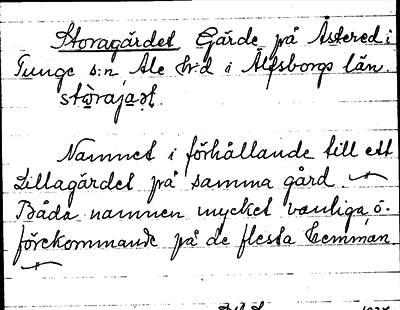 Storagärdet Gärde på Åstered i
Tunge s:n Ale h:d i Älfsborgs län.
Namnet i förhållande till ett
Lillagärdet på samma gård.
Båda namnen mycket vanliga, o.
förekommande på de flesta hemman.